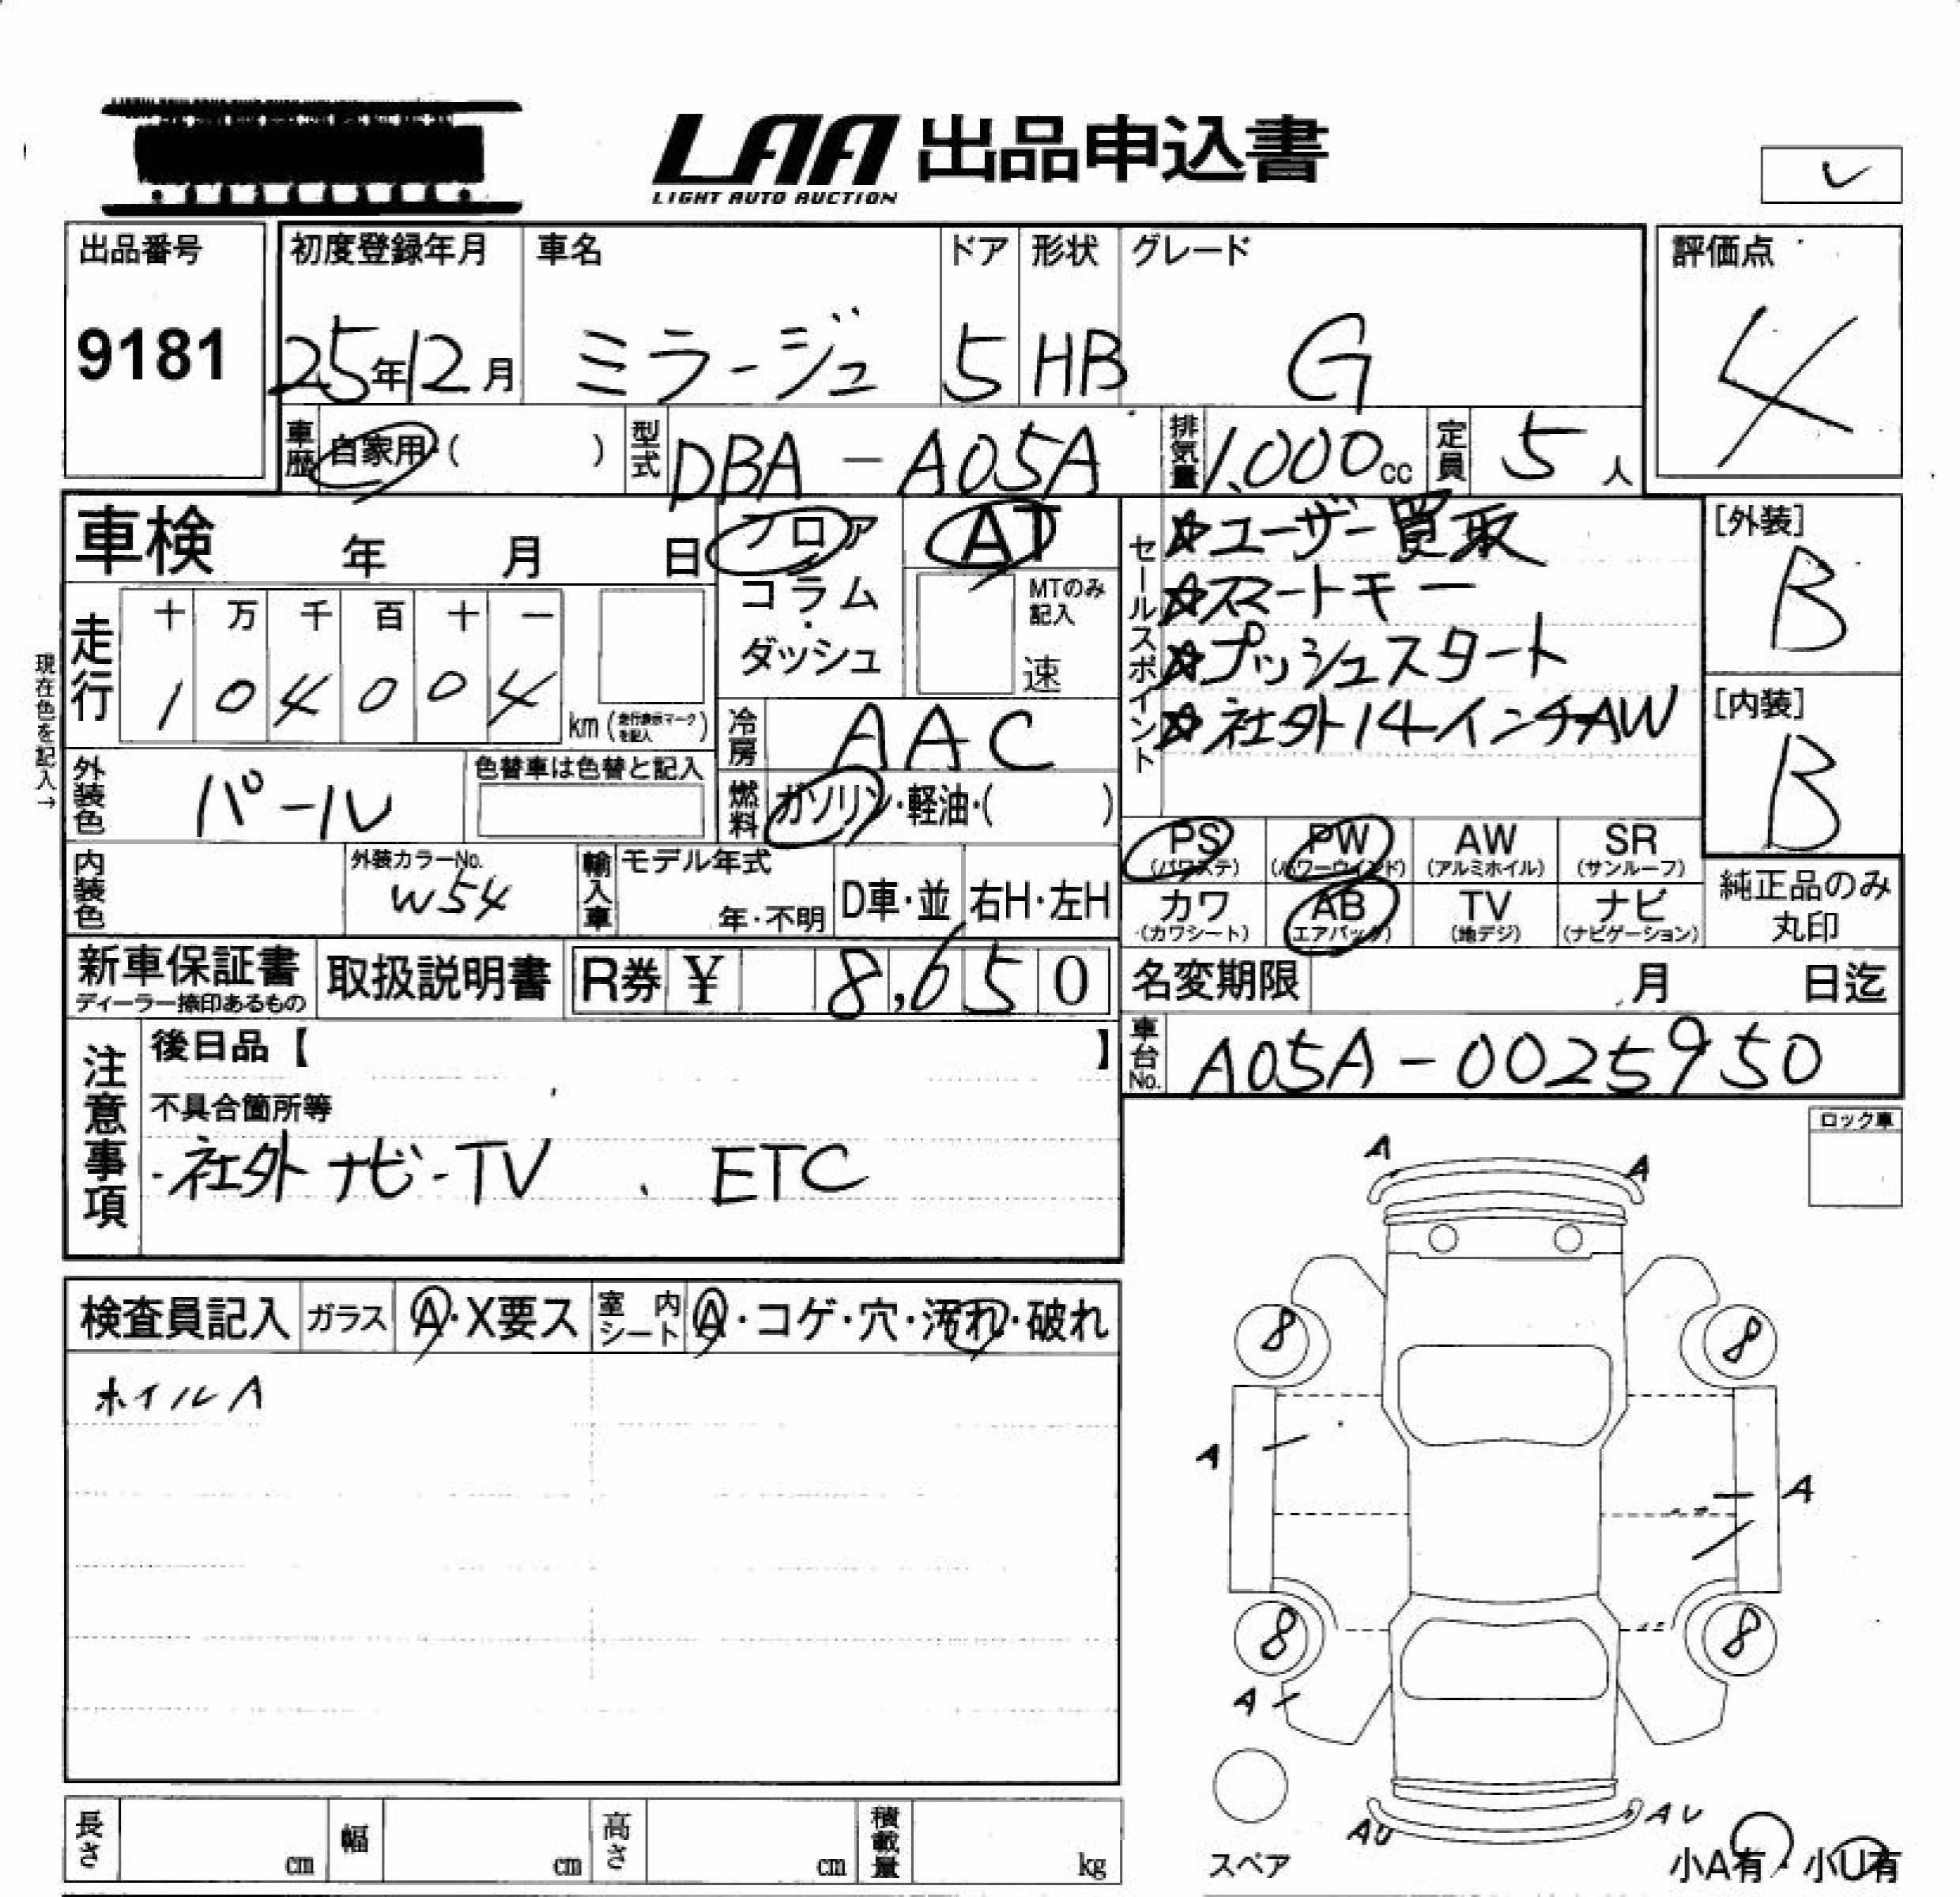 LAA 出品申込書
LIGHT AUTO AUCTION
レ
出品番号
9181
初度登録年月 車名 ドア 形状 グレード
25年12月 ミラージュ 5 HB G
評価点
4
車歴 自家用・( ) 型式 DBA-A05A 排気量 1,000cc 定員 5人
車検 年 月 日
フロア・コラム・ダッシュ
AT
MTのみ記入
速
セールスポイント
☆ユーザー買取
☆スマートキー
☆プッシュスタート
☆社外14インチAW
[外装]
B
[内装]
B
現在色を記入→
走行 十 万 千 百 十 一
1 0 4 0 0 4 km (走行表示マークを記入)
冷房 AAC
外装色 パール 色替車は色替と記入
燃料 ガソリン・軽油・( )
PS (パワステ) PW (パワーウインド) AW (アルミホイル) SR (サンルーフ)
カワ (カワシート) AB (エアバック) TV (地デジ) ナビ (ナビゲーション)
純正品のみ丸印
内装色 外装カラーNo. W54 輸入車 モデル年式 年・不明 D車・並 右H・左H
新車保証書 ディーラー捺印あるもの 取扱説明書 R券 ¥ 8,650
名変期限 月 日迄
車台No. A05A-0025950
注意事項
後日品【 】
不具合箇所等
・社外ナビ・TV 、ETC
ロック車
検査員記入 ガラス A・X要ス 室内シート A・コゲ・穴・汚れ・破れ
ホイルA
A A
8 8
A A
8 8
A
AU AU
スペア
小A有・小U有
長さ cm 幅 cm 高さ cm 積載量 kg